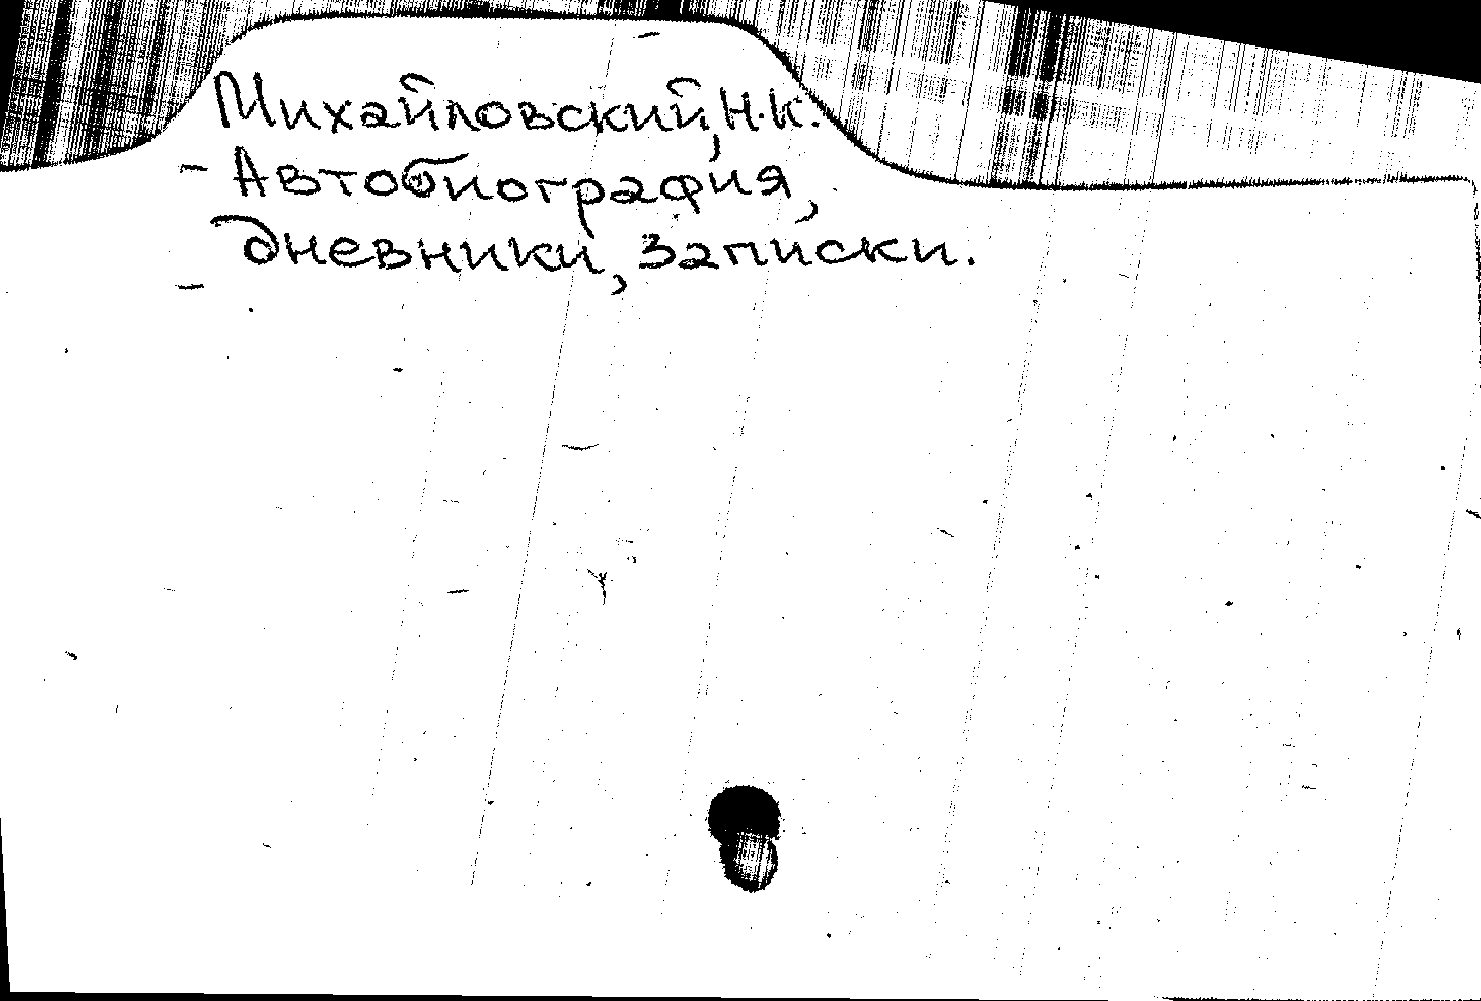 Михайловский, Н.К.
- Автобиография,
дневники, записки.